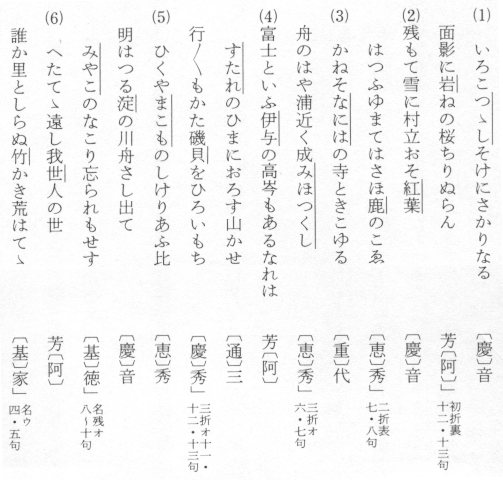 (1) いろこつゝしそけにさかりなる 〔慶〕音
面影に岩ねの桜ちりぬらん 芳〔阿〕」 初折裏 十二・十三句
(2) 残もて雪に村立おそ紅葉 〔慶〕音
はつふゆまてはさほ鹿のこゑ 〔恵〕秀」 二折表 七・八句
(3) かねそなにはの寺ときこゆる 〔重〕代
舟のはや浦近く成みほつくし 〔恵〕秀」 三折オ 六・七句
(4) 富士といふ伊与の高岑もあるなれは 芳〔阿〕
すたれのひまにおろす山かせ 〔通〕三
行〳〵もかた磯貝をひろいもち 〔慶〕秀」 三折オ十一・十二・十三句
(5) ひくやまこものしけりあふ比 〔恵〕秀
明はつる淀の川舟さし出て 〔慶〕音
みやこのなこり忘られもせす 〔基〕徳」 名残オ 八〜十句
(6) へたてゝ遠し我世人の世 芳〔阿〕
誰か里としらぬ竹かき荒はてゝ 〔基〕家」 名ウ 四・五句